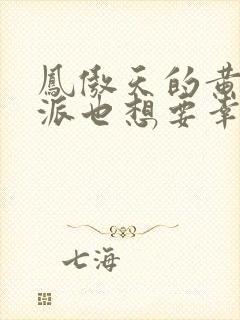 鳳傲天的黄
派也想要幸
七海